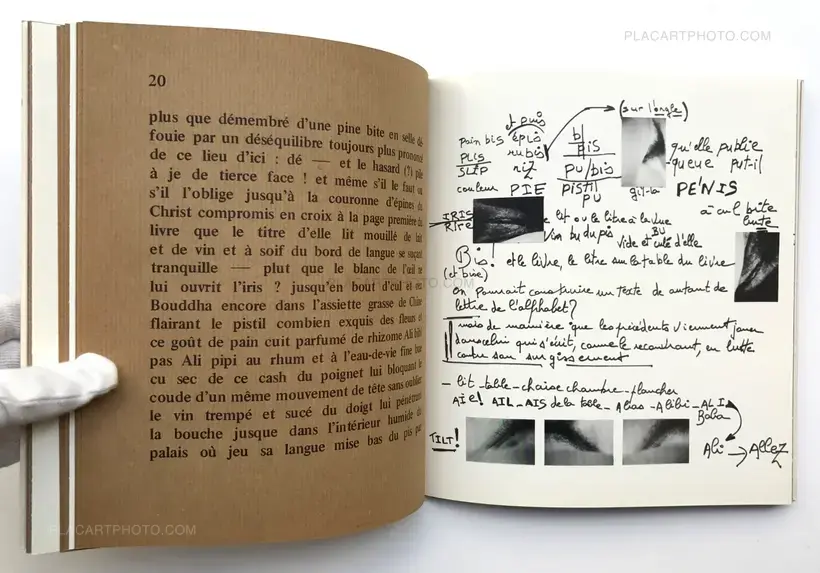 PLACARTPHOTO.COM
20
plus que démembré d'une pine bite en selle de
fouie par un déséquilibre toujours plus prononcé
de ce lieu d'ici : dé — et le hasard (?) pile
à je de tierce face ! et même s'il le faut ou
s'il l'oblige jusqu'à la couronne d'épines du
Christ compromis en croix à la page première du
livre que le titre d'elle lit mouillé de lait
et de vin et à soif du bord de langue se suçant
tranquille — plut que le blanc de l'œil ne
lui ouvrit l'iris ? jusqu'en bout d'cul et
Bouddha encore dans l'assiette grasse de Chine
flairant le pistil combien exquis des fleurs et
ce goût de pain cuit parfumé de rhizome Ali bibi
pas Ali pipi au rhum et à l'eau-de-vie fine
cu sec de ce cash du poignet lui bloquant le
coude d'un même mouvement de tête sans oublier
le vin trempé et sucé du doigt lui pénétrant
la bouche jusque dans l'intérieur humide du
palais où jeu sa langue mise bas du pis par
et puis
(sur l'ongle)
pain bis épis
PLIS rubis
SLIP riz
couleur PIE
b
pis
pu/bis
pistil
pu
qu'elle publie
queue put-il
gît-là PÉNIS
à cul bite
IRIS
Rire
le lit ou le litre à la vue
Vin bu du pis
vide et culé d'elle
BU
Bis! et le livre, le litre sur la table du livre
(et bise)
on pourrait construire un texte de autant de
lettre de l'alphabet?
mais de manière que les précédents viennent jouer
dans celui qui s'écrit, comme le recouvrant, en lutte
contre son surgissement
- lit - table - chaise chambre - plancher
AÏE! AIL - AIS de la table - Abas - Alibi - ALI
Baba
TILT!
Ali → ALLEZ
PLACARTPHOTO.COM